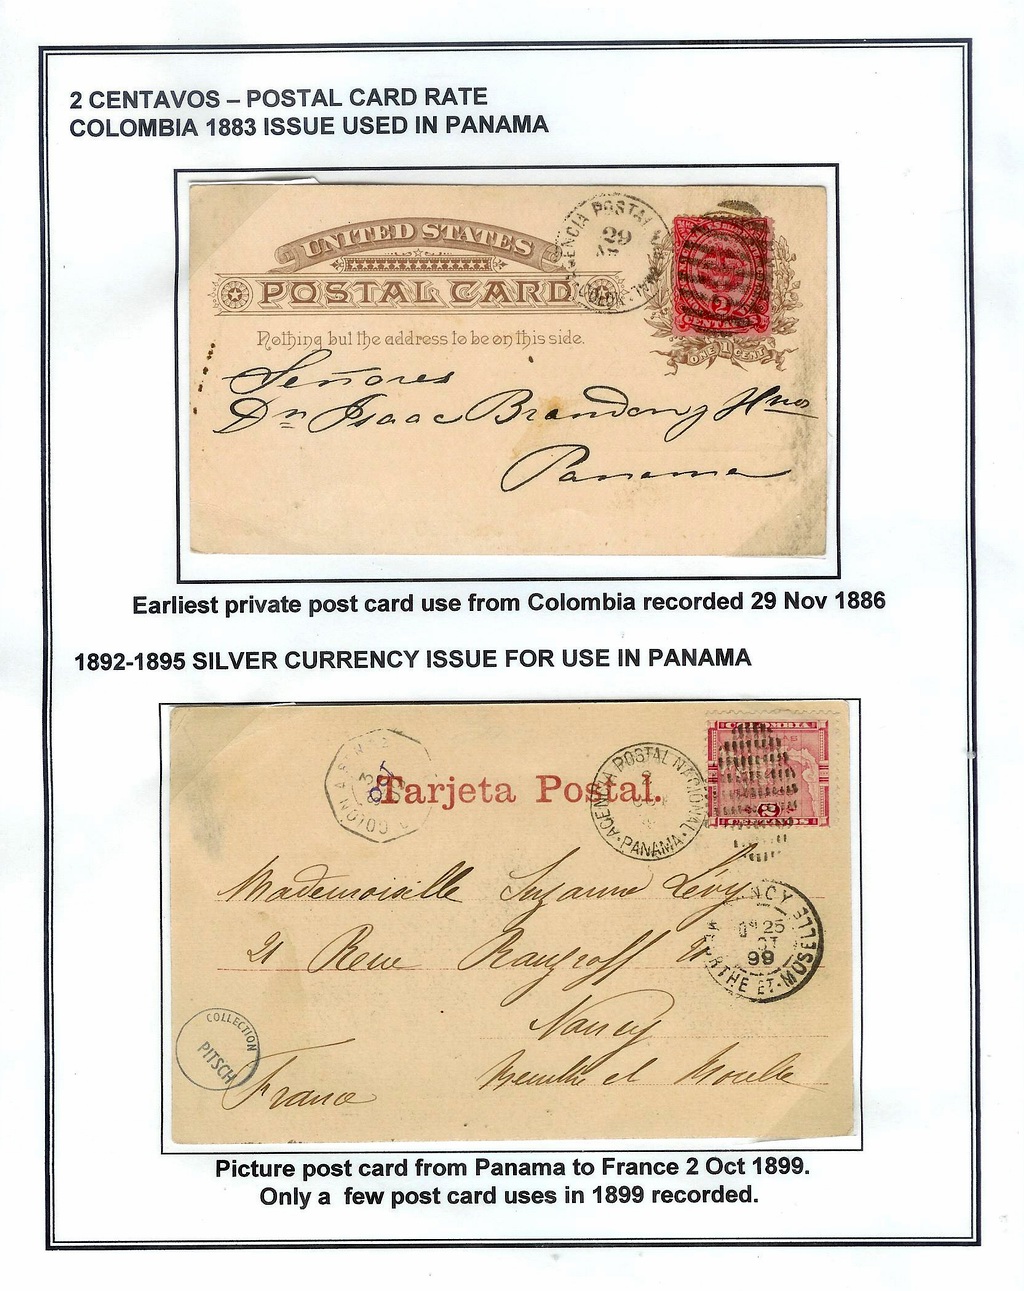 2 CENTAVOS – POSTAL CARD RATE
COLOMBIA 1883 ISSUE USED IN PANAMA
UNITED STATES
POSTAL CARD
Nothing but the address to be on this side.
AGENCIA POSTAL
29
COLON
2
CENTAVOS
ONE 1 CENT
Señores
Dn Isaac Brandon y Hnos
Panama
Earliest private post card use from Colombia recorded 29 Nov 1886
1892-1895 SILVER CURRENCY ISSUE FOR USE IN PANAMA
Tarjeta Postal.
COLON
3
AGENCIA POSTAL NACIONAL
2
PANAMA
COLOMBIA
2
Mademoiselle Suzanne Lévy
21 Rue Raugraff 21
Nancy
Meurthe et Moselle
France
NANCY
25
OCT
99
MEURTHE ET-MOSELLE
COLLECTION
PITSCH
Picture post card from Panama to France 2 Oct 1899.
Only a few post card uses in 1899 recorded.